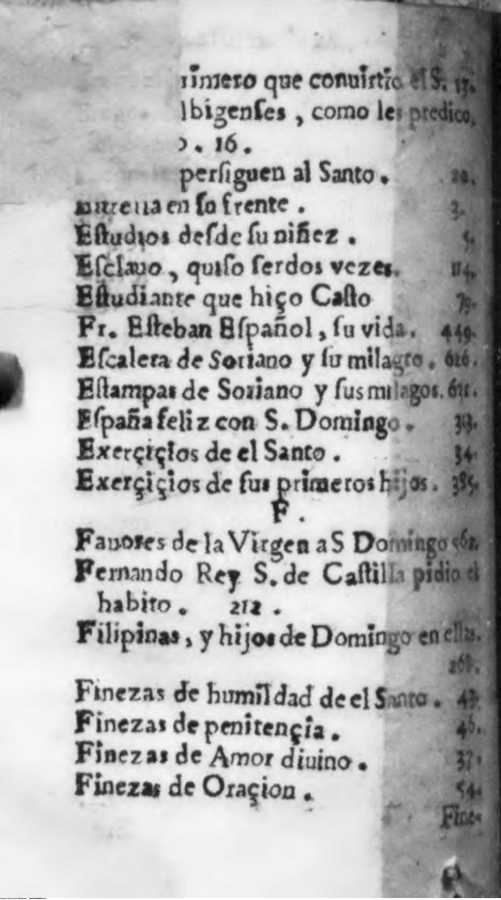 rimero que conuirtio el S. 15.
lbigenſes, como les predico,
o. 16.
perſiguen al Santo. 20.
en ſo frente. 3.
Eſtudios deſde ſu niñez. 5.
Eſclauo, quiſo ſerdos vezes. 114.
Eſtudiante que hiço Caſto 79.
Fr. Eſteban Eſpañol, ſu vida. 449.
Eſcalera de Soriano y ſu milagro. 616.
Eſtampas de Soriano y ſus milagos. 611.
Eſpaña feliz con S. Domingo. 313.
Exerçiçios de el Santo. 34.
Exerçiçios de ſus primeros hijos. 385.
F.
Fauores de la Virgen a S Domingo 562.
Fernando Rey S. de Caſtilla pidio el
habito. 212.
Filipinas, y hijos de Domingo en ellas.
268.
Finezas de humildad de el Santo. 43.
Finezas de penitençia. 46.
Finezas de Amor diuino. 37.
Finezas de Oraçion. 54.
Fine-